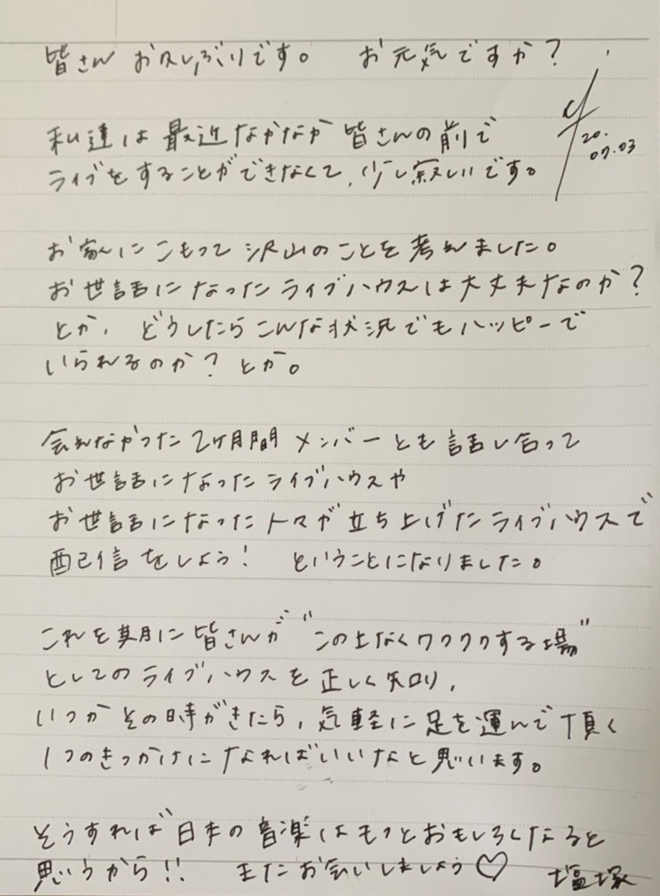 皆さん お久しぶりです。 お元気ですか?
20.
07.03
私達は最近なかなか皆さんの前で
ライブをすることができなくて、少し寂しいです。
お家にこもって沢山のことを考えました。
お世話になったライブハウスは大丈夫なのか?
とか、どうしたらこんな状況でもハッピーで
いられるのか? とか。
会えなかった2ヶ月間メンバーとも話し合って
お世話になったライブハウスや
お世話になったトマが立ち上げたライブハウスで
配信をしよう! ということになりました。
これを期に皆さんが"この上なくワクワクする場"
としてのライブハウスを正しく知り、
いつかその時がきたら、気軽に足を運んで頂く
1つのきっかけになればいいなと思います。
そうすれば日本の音楽はもっとおもしろくなると
思うから!! またお会いしましょう♡ 塩塚